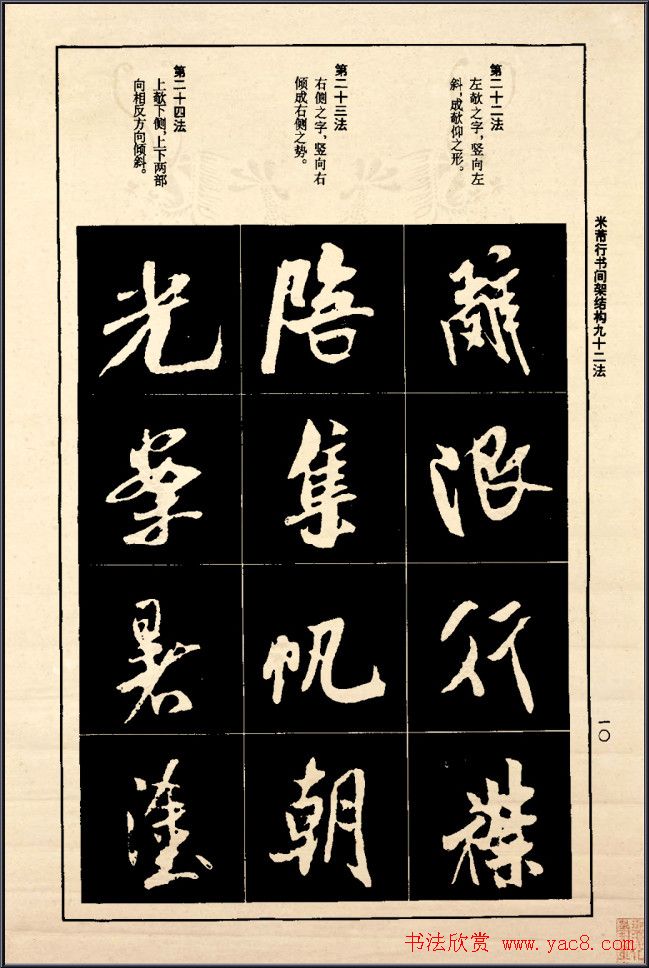 米芾行书间架结构九十二法
一〇
第二十二法
左欹之字，竖向左
斜，成欹仰之形。
第二十三法
右侧之字，竖向右
倾成右侧之势。
第二十四法
上欹下侧，上下两部
向相反方向倾斜。
辭
浪
行
陪
集
帆
朝
光
暑
塗
书法欣赏 www.yac8.com